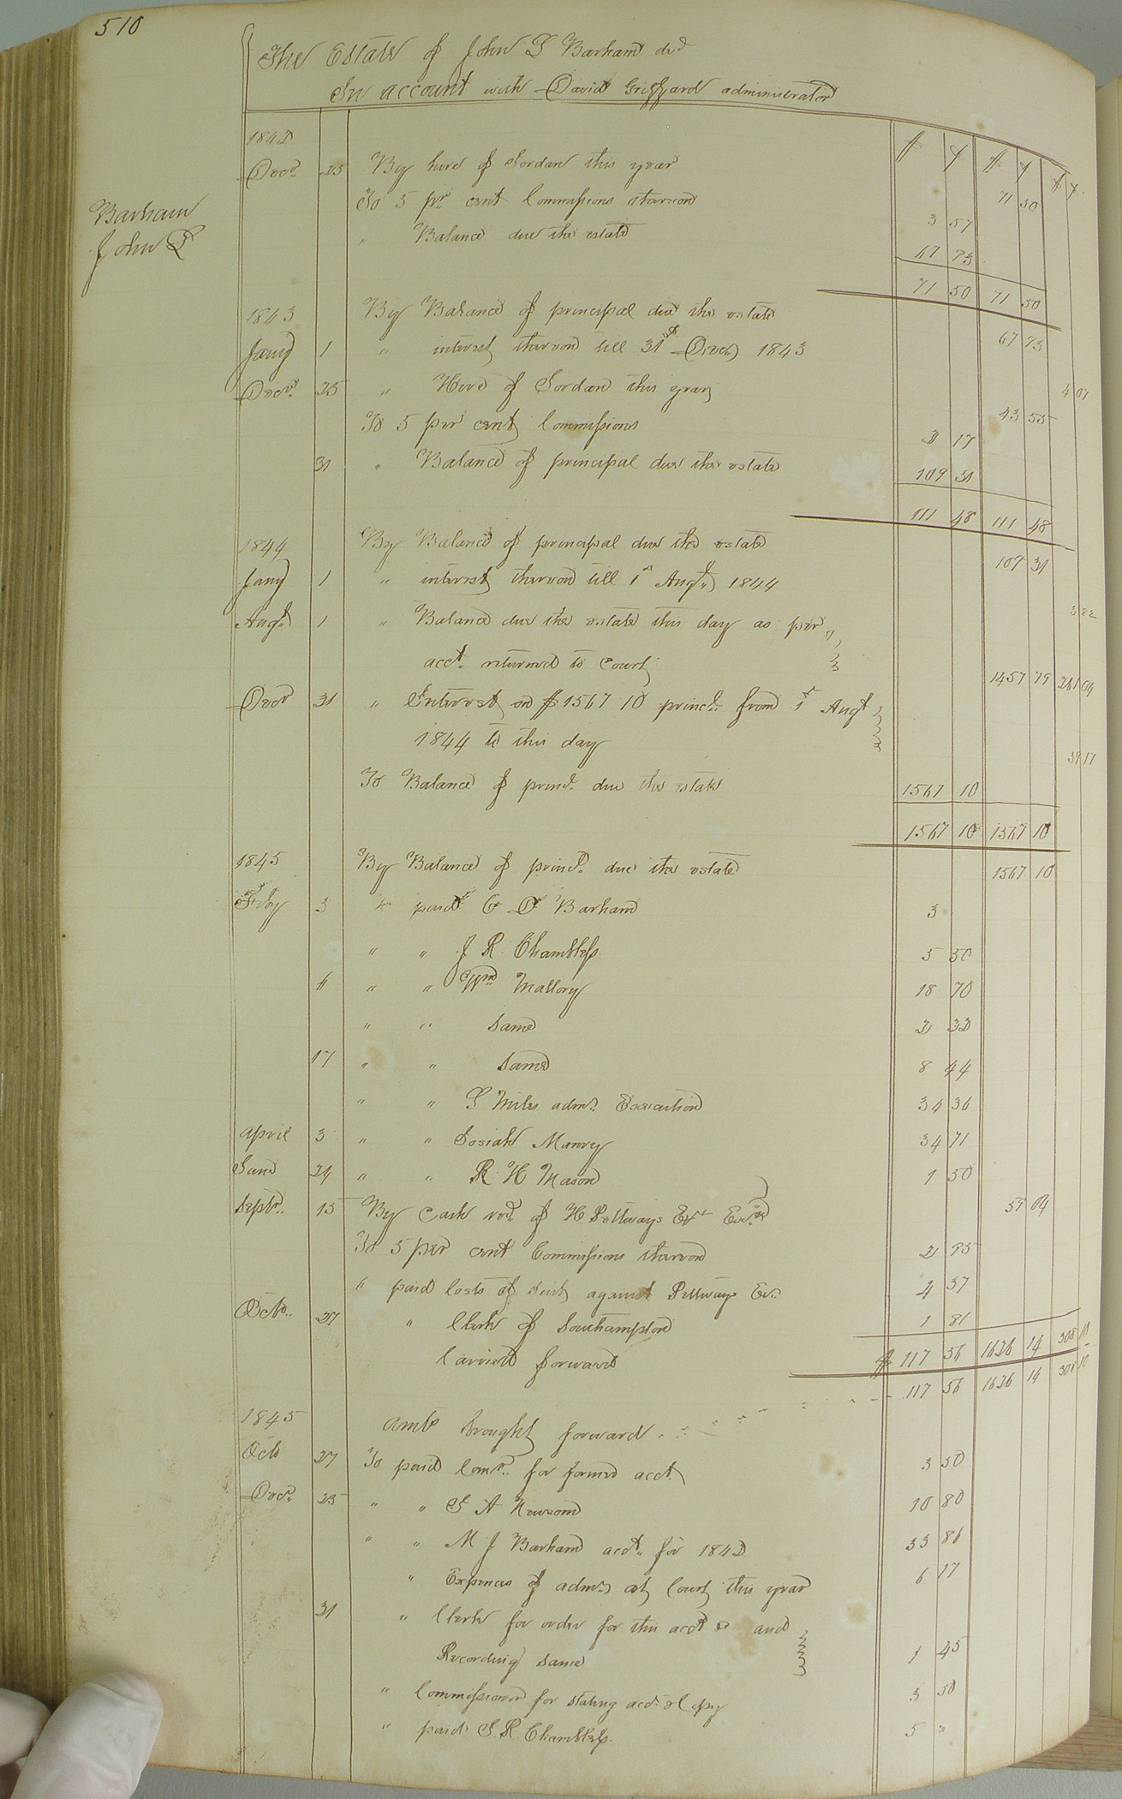 510
The Estate of John L Barham decd
In account with David Grizzard administrator
Barham
John L
$ ¢ $ ¢ $ ¢
1842
Decr 25 By hire of Jordan this year 71 50
To 5 pr cent Commissions thereon 3 57
Balance due the estate 67 93
71 50 71 50
1843 By Balance of principal due the estate 67 93
Jany 1 " interest thereon till 31st Decr 1843 4 07
Decr 25 " Hire of Jordan this year 43 55
To 5 per cent Commissions 2 17
31 " Balance of principal due the estate 109 31
111 48 111 48
1844 By Balance of principal due the estate 109 31
Jany 1 " interest thereon till 1st Augt 1844 3 22
Augt 1 " Balance due the estate this day as per
acct. returned to Court 1457 79 261 64
Decr 31 " Interest on $1567 10 princl. from 1st Augt
1844 to this day 39 17
To Balance of princl. due the estate 1567 10
1567 10 1567 10
1845 By Balance of princl. due the estate 1567 10
Feby 3 " paid Barham 3
" " J R Chambliss 5 50
6 " " Wm Mallory 18 70
" " Same 2 32
17 " " Same 8 44
" " Miles admr. Execution 34 36
April 3 " " Josiah Manry 34 71
June 24 " " R H Mason 1 50
Septr. 15 By Cash recd of H Pettways Exr 59 04
To 5 per cent Commissions thereon 2 95
" paid Costs of Suit against Pettways Exr. 4 37
Octr. 27 " Clerk of Southampton 1 81
Carried forward $ 117 56 1626 14 308 10
1845 Amts brought forward 117 56 1626 14 308 10
Oct 27 To paid Comr. for former acct. 3 50
Decr. 25 " " Newsom 10 80
" " M J Barham acct. for 1842 33 86
" Expences of admr. at Court this year 6 17
31 " Clerk for order for this acct & and
Recording Same 1 45
" Commissioner for stating acct. & Copy 3 50
" paid J R Chambliss 5 "